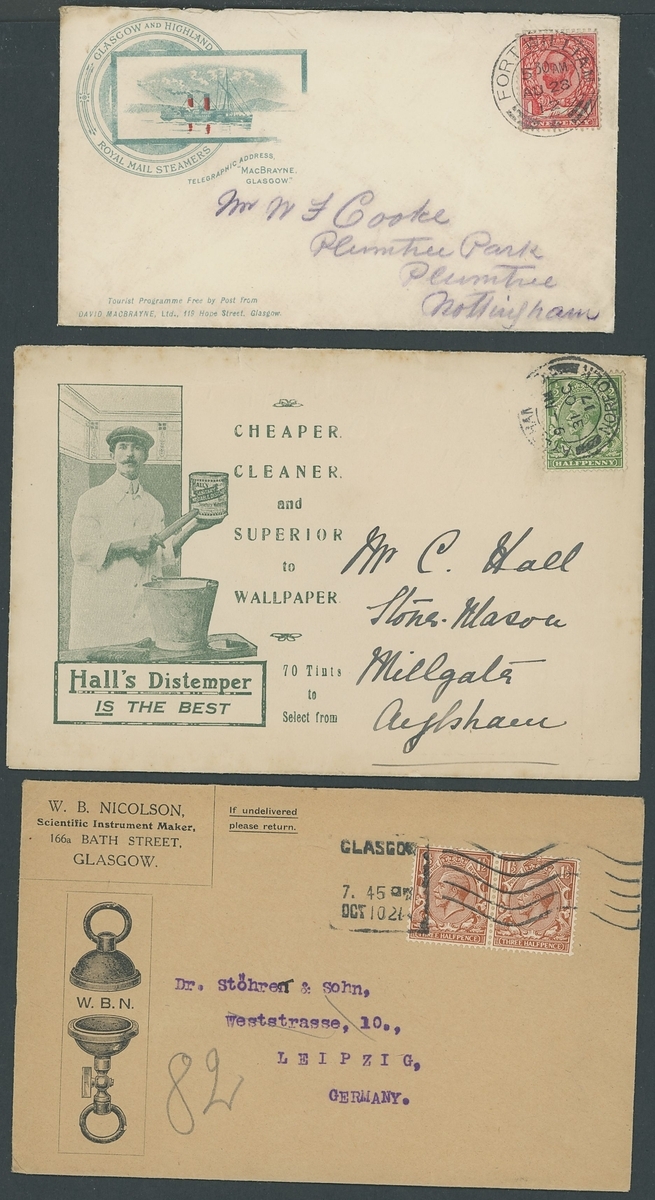 GLASGOW AND HIGHLAND
ROYAL MAIL STEAMERS
TELEGRAPHIC ADDRESS,
"MACBRAYNE,
GLASGOW."
FORT WILLIAM
30AM
28
ONE PENNY
Mr W F Cooke
Plumtree Park
Plumtree
Nottingham
Tourist Programme Free by Post from
DAVID MACBRAYNE, Ltd., 119 Hope Street, Glasgow.
HALFPENNY
CHEAPER.
CLEANER.
and
SUPERIOR
to
WALLPAPER.
HALL'S
70 Tints
to
Select from
Hall's Distemper
IS THE BEST
Mr C. Hall
Stone-Mason
Millgate
Aylsham
W. B. NICOLSON,
Scientific Instrument Maker,
166a BATH STREET,
GLASGOW.
If undelivered
please return.
GLASGOW
7. 45
OCT 10 24
THREE HALFPENCE
THREE HALFPENCE
W. B. N.
Dr. Stöhrer & Sohn,
Weststrasse, 10.,
LEIPZIG,
GERMANY.
82